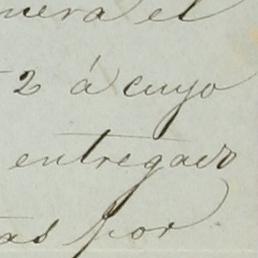 nera el
2 á cuyo
entregado
tas por